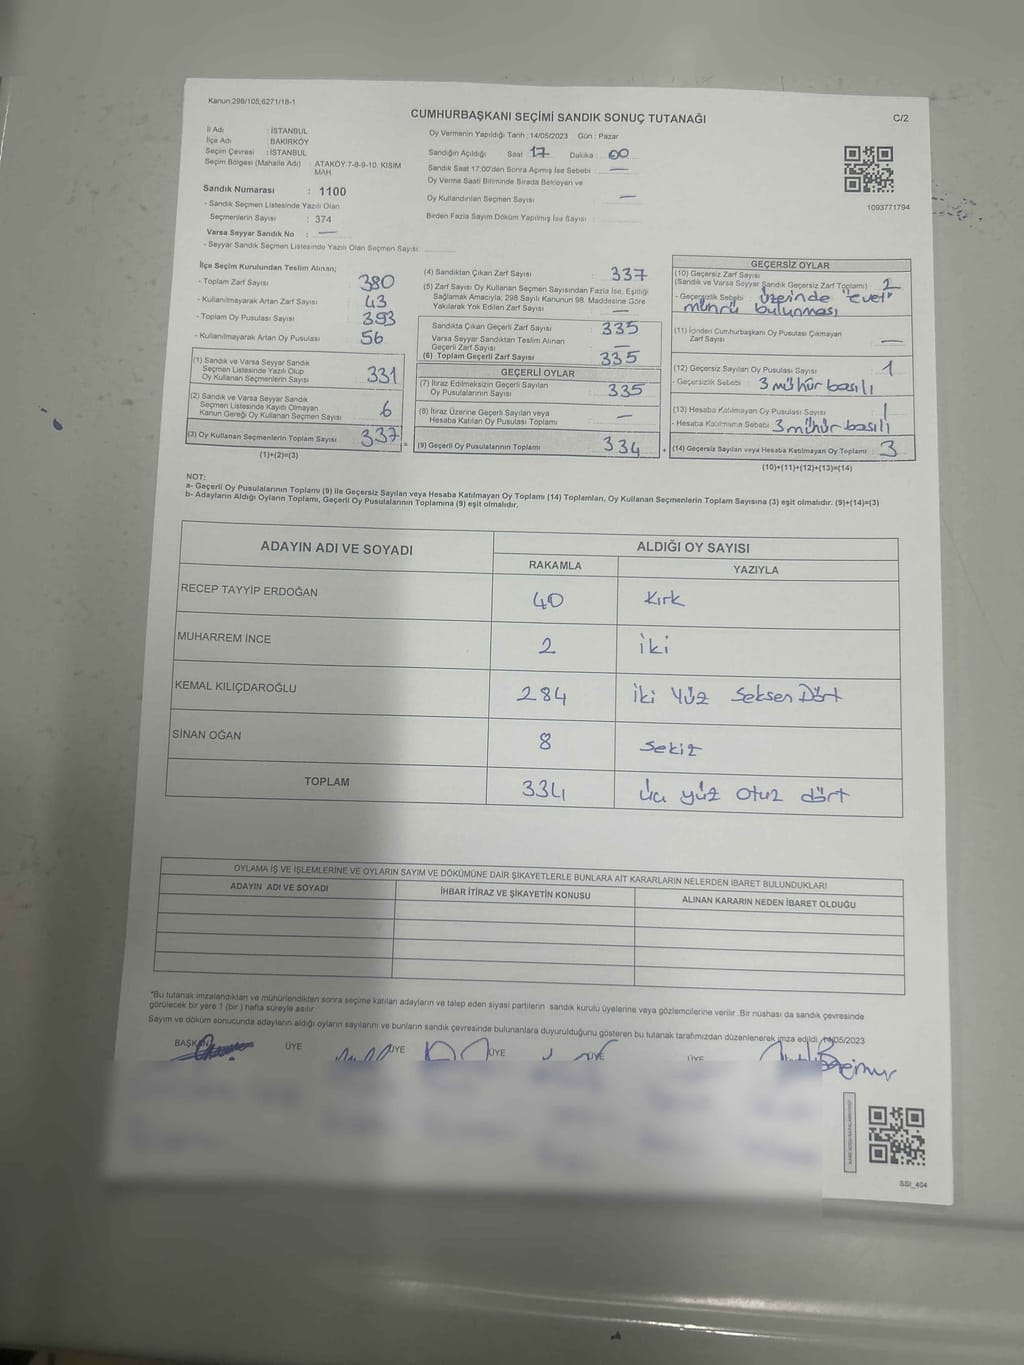 Kanun 298/105,6271/18-1
CUMHURBAŞKANI SEÇİMİ SANDIK SONUÇ TUTANAĞI
C/2
İl Adı : İSTANBUL
İlçe Adı BAKIRKÖY
Seçim Çevresi : İSTANBUL
Seçim Bölgesi (Mahalle Adı) : ATAKÖY 7-8-9-10. KISIM MAH
Sandık Numarası : 1100
- Sandık Seçmen Listesinde Yazılı Olan
Seçmenlerin Sayısı : 374
Varsa Seyyar Sandık No : —
- Seyyar Sandık Seçmen Listesinde Yazılı Olan Seçmen Sayısı
Oy Vermenin Yapıldığı Tarih : 14/05/2023 Gün : Pazar
Sandığın Açıldığı Saat 17 Dakika 00
Sandık Saat 17:00'den Sonra Açımış İse Sebebi : —
Oy Verme Saati Bitiminde Sırada Bekleyen ve
Oy Kullandırılan Seçmen Sayısı —
Birden Fazla Sayım Döküm Yapılmış İse Sayısı :
1093771794
İlçe Seçim Kurulundan Teslim Alınan;
- Toplam Zarf Sayısı 380
- Kullanılmayarak Artan Zarf Sayısı 43
- Toplam Oy Pusulası Sayısı 393
- Kullanılmayarak Artan Oy Pusulası 56
(1) Sandık ve Varsa Seyyar Sandık
Seçmen Listesinde Yazılı Olup
Oy Kullanan Seçmenlerin Sayısı 331
(2) Sandık ve Varsa Seyyar Sandık
Seçmen Listesinde Kayıtlı Olmayan
Kanun Gereği Oy Kullanan Seçmen Sayısı 6
(3) Oy Kullanan Seçmenlerin Toplam Sayısı 337
(1)+(2)=(3)
(4) Sandıktan Çıkan Zarf Sayısı 337
(5) Zarf Sayısı Oy Kullanan Seçmen Sayısından Fazla İse, Eşitliği
Sağlamak Amacıyla; 298 Sayılı Kanunun 98. Maddesine Göre
Yakılarak Yok Edilen Zarf Sayısı —
Sandıkta Çıkan Geçerli Zarf Sayısı 335
Varsa Seyyar Sandıktan Teslim Alınan
Geçerli Zarf Sayısı —
(6) Toplam Geçerli Zarf Sayısı 335
GEÇERLİ OYLAR
(7) İtiraz Edilmeksizin Geçerli Sayılan
Oy Pusulalarının Sayısı 335
(8) İtiraz Üzerine Geçerli Sayılan veya
Hesaba Katılan Oy Pusulası Toplamı —
(9) Geçerli Oy Pusulalarının Toplamı 334
GEÇERSİZ OYLAR
(10) Geçersiz Zarf Sayısı
(Sandık ve Varsa Seyyar Sandık Geçersiz Zarf Toplamı) 2
- Geçersizlik Sebebi üzerinde "evet"
mührü bulunması
(11) İçinden Cumhurbaşkanı Oy Pusulası Çıkmayan
Zarf Sayısı —
(12) Geçersiz Sayılan Oy Pusulası Sayısı 1
- Geçersizlik Sebebi 3 mühür basılı
(13) Hesaba Katılmayan Oy Pusulası Sayısı 1
- Hesaba Katılmama Sebebi 3 mühür basılı
(14) Geçersiz Sayılan veya Hesaba Katılmayan Oy Toplamı 3
(10)+(11)+(12)+(13)=(14)
NOT:
a- Geçerli Oy Pusulalarının Toplamı (9) ile Geçersiz Sayılan veya Hesaba Katılmayan Oy Toplamı (14) Toplamları, Oy Kullanan Seçmenlerin Toplam Sayısına (3) eşit olmalıdır. (9)+(14)=(3)
b- Adayların Aldığı Oyların Toplamı, Geçerli Oy Pusulalarının Toplamına (9) eşit olmalıdır.
ADAYIN ADI VE SOYADI
ALDIĞI OY SAYISI
RAKAMLA YAZIYLA
RECEP TAYYİP ERDOĞAN 40 Kırk
MUHARREM İNCE 2 iki
KEMAL KILIÇDAROĞLU 284 İki Yüz Seksen Dört
SİNAN OĞAN 8 Sekiz
TOPLAM 334 Üç yüz otuz dört
OYLAMA İŞ VE İŞLEMLERİNE VE OYLARIN SAYIM VE DÖKÜMÜNE DAİR ŞİKAYETLERLE BUNLARA AİT KARARLARIN NELERDEN İBARET BULUNDUKLARI
ADAYIN ADI VE SOYADI İHBAR İTİRAZ VE ŞİKAYETİN KONUSU ALINAN KARARIN NEDEN İBARET OLDUĞU
*Bu tutanak imzalandıktan ve mühürlendikten sonra seçime katılan adayların ve talep eden siyasi partilerin sandık kurulu üyelerine veya gözlemcilerine verilir .Bir nüshası da sandık çevresinde
görülecek bir yere 1 (bir ) hafta süreyle asılır.
Sayım ve döküm sonucunda adayların aldığı oyların sayılarını ve bunların sandık çevresinde bulunanlara duyurulduğunu gösteren bu tutanak tarafımızdan düzenlenerek imza edildi. 14/05/2023
BAŞKAN ÜYE ÜYE ÜYE ÜYE ÜYE
SSI_404